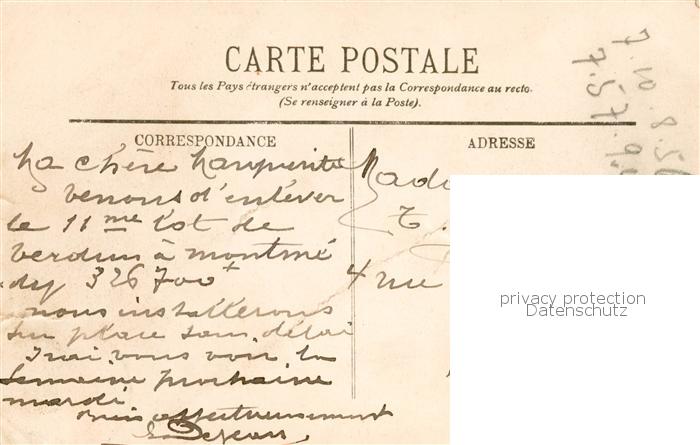 CARTE POSTALE
Tous les Pays étrangers n'acceptent pas la Correspondance au recto.
(Se renseigner à la Poste).
CORRESPONDANCE
ADRESSE
Ma chère Marguerite
venons d'enlever
le 11me lot de
Verdun à montmé
dy 326700
nous installerons
sur place sans délai
J'irai vous voir la
semaine prochaine
mardi
affectueusement
Mad
4 rue
privacy protection
Datenschutz